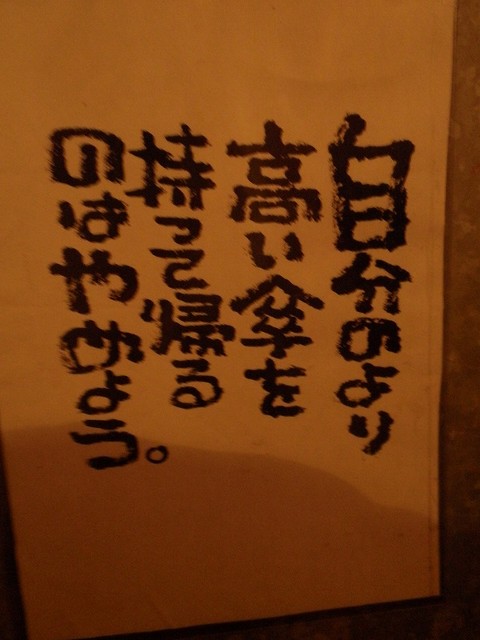 自分のより
高い傘を
持って帰る
のはやめよう。